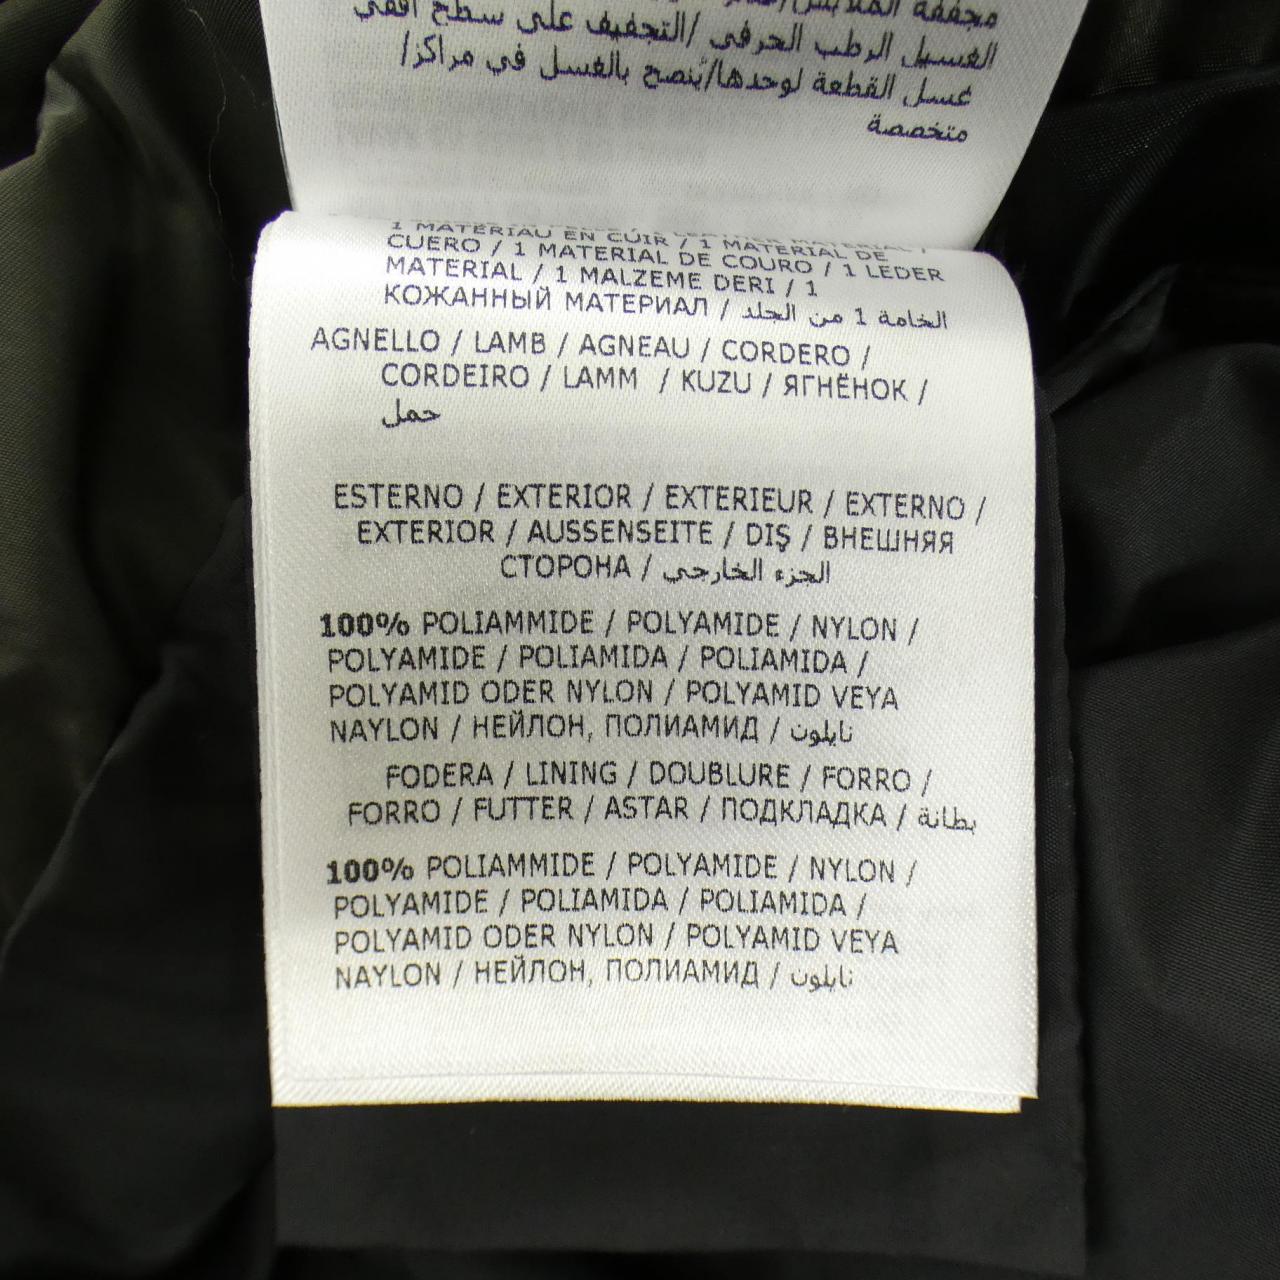 مجففة الملابس
الغسيل الرطب الحرفي /التجفيف على سطح أفقي
غسل القطعة لوحدها/يُنصح بالغسل في مراكز/
متخصصة
1 MATERIAU EN CUIR / 1 MATERIAL DE
CUERO / 1 MATERIAL DE COURO / 1 LEDER
MATERIAL / 1 MALZEME DERI / 1
КОЖАННЫЙ МАТЕРИАЛ / الخامة 1 من الجلد
AGNELLO / LAMB / AGNEAU / CORDERO /
CORDEIRO / LAMM / KUZU / ЯГНЁНОК /
حمل
ESTERNO / EXTERIOR / EXTERIEUR / EXTERNO /
EXTERIOR / AUSSENSEITE / DIŞ / ВНЕШНЯЯ
СТОРОНА / الجزء الخارجي
100% POLIAMMIDE / POLYAMIDE / NYLON /
POLYAMIDE / POLIAMIDA / POLIAMIDA /
POLYAMID ODER NYLON / POLYAMID VEYA
NAYLON / НЕЙЛОН, ПОЛИАМИД / نايلون
FODERA / LINING / DOUBLURE / FORRO /
FORRO / FUTTER / ASTAR / ПОДКЛАДКА / بطانة
100% POLIAMMIDE / POLYAMIDE / NYLON /
POLYAMIDE / POLIAMIDA / POLIAMIDA /
POLYAMID ODER NYLON / POLYAMID VEYA
NAYLON / НЕЙЛОН, ПОЛИАМИД / نايلون